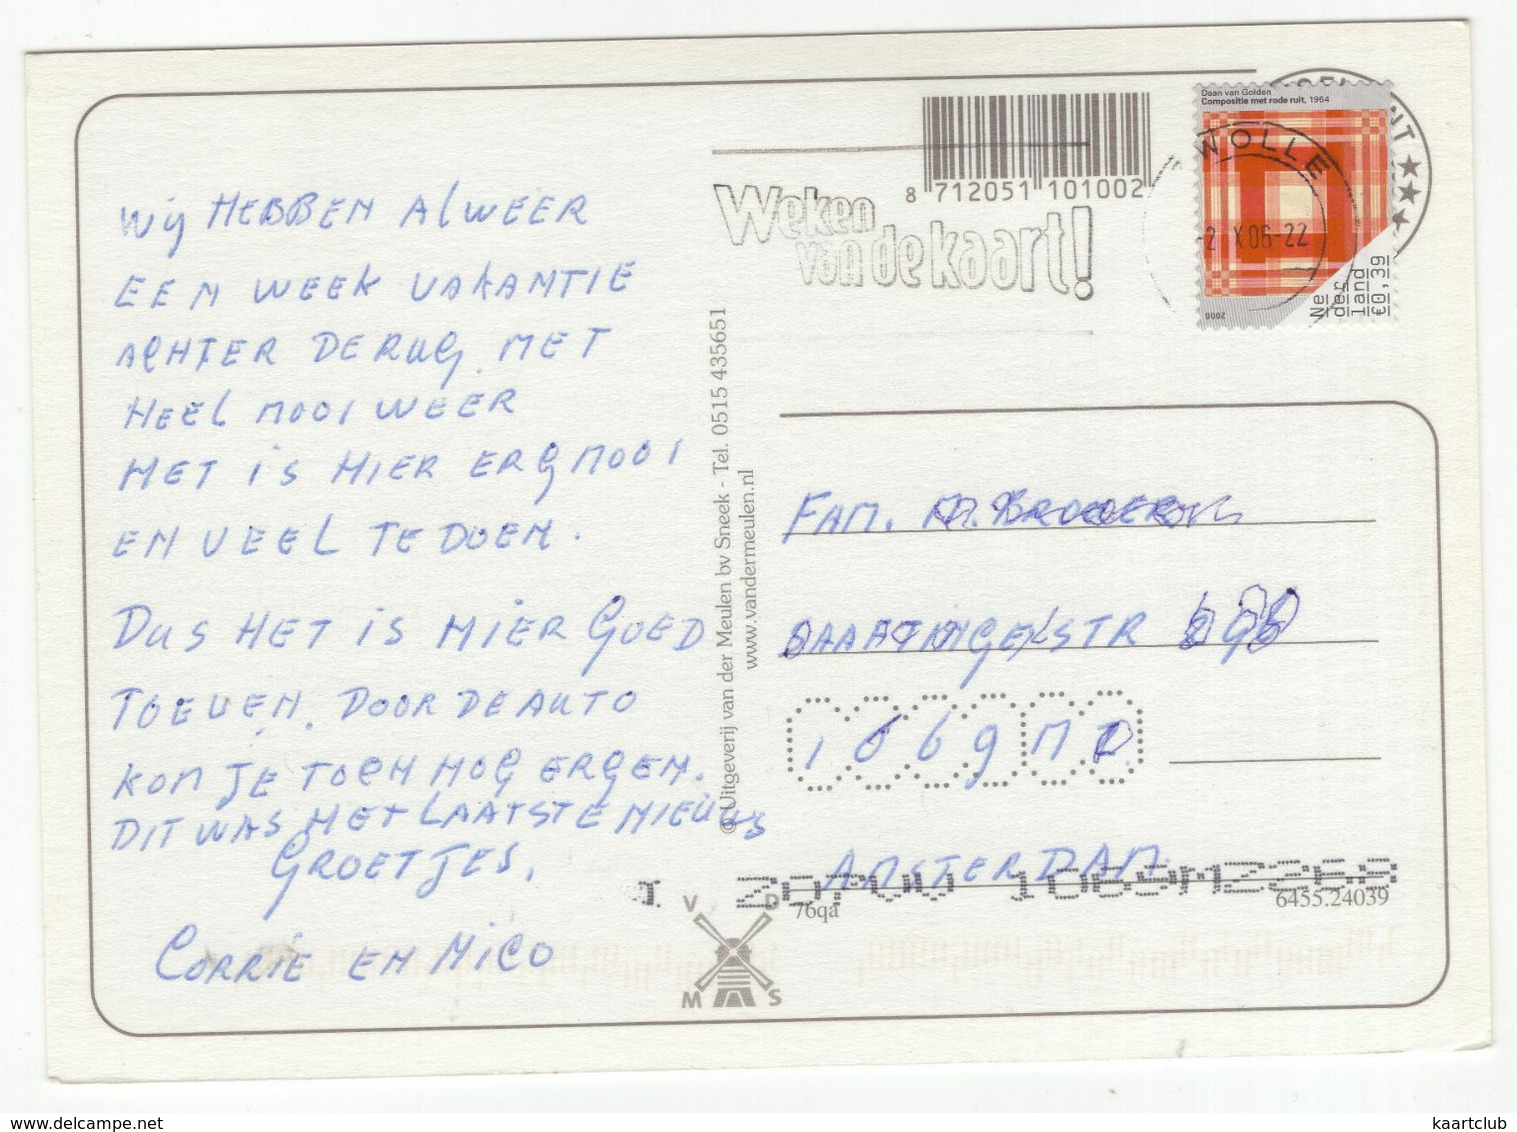 Daan van Golden
Compositie met rode ruit, 1964
WOLLE
-2 X06-22
2006
Ne
der
land
€0,39
8 712051 101002
Weken
van de kaart!
WIJ HEBBEN ALWEER
EEN WEEK VAKANTIE
ACHTER DE RUG. MET
HEEL MOOI WEER
HET IS HIER ERG MOOI
EN VEEL TE DOEN.
DUS HET IS HIER GOED
TOEVEN. DOOR DE AUTO
KOM JE TOCH NOG ERGEN.
DIT WAS HET LAATSTE NIEUWS
GROETJES.
CORRIE EN NICO
© Uitgeverij van der Meulen bv Sneek - Tel. 0515 435651
www.vandermeulen.nl
FAM.
STR
1069 MZ
AMSTERDAM.
1069MZ
76qa
6455.24039
V D
M S
www.delcampe.net
kaartclub